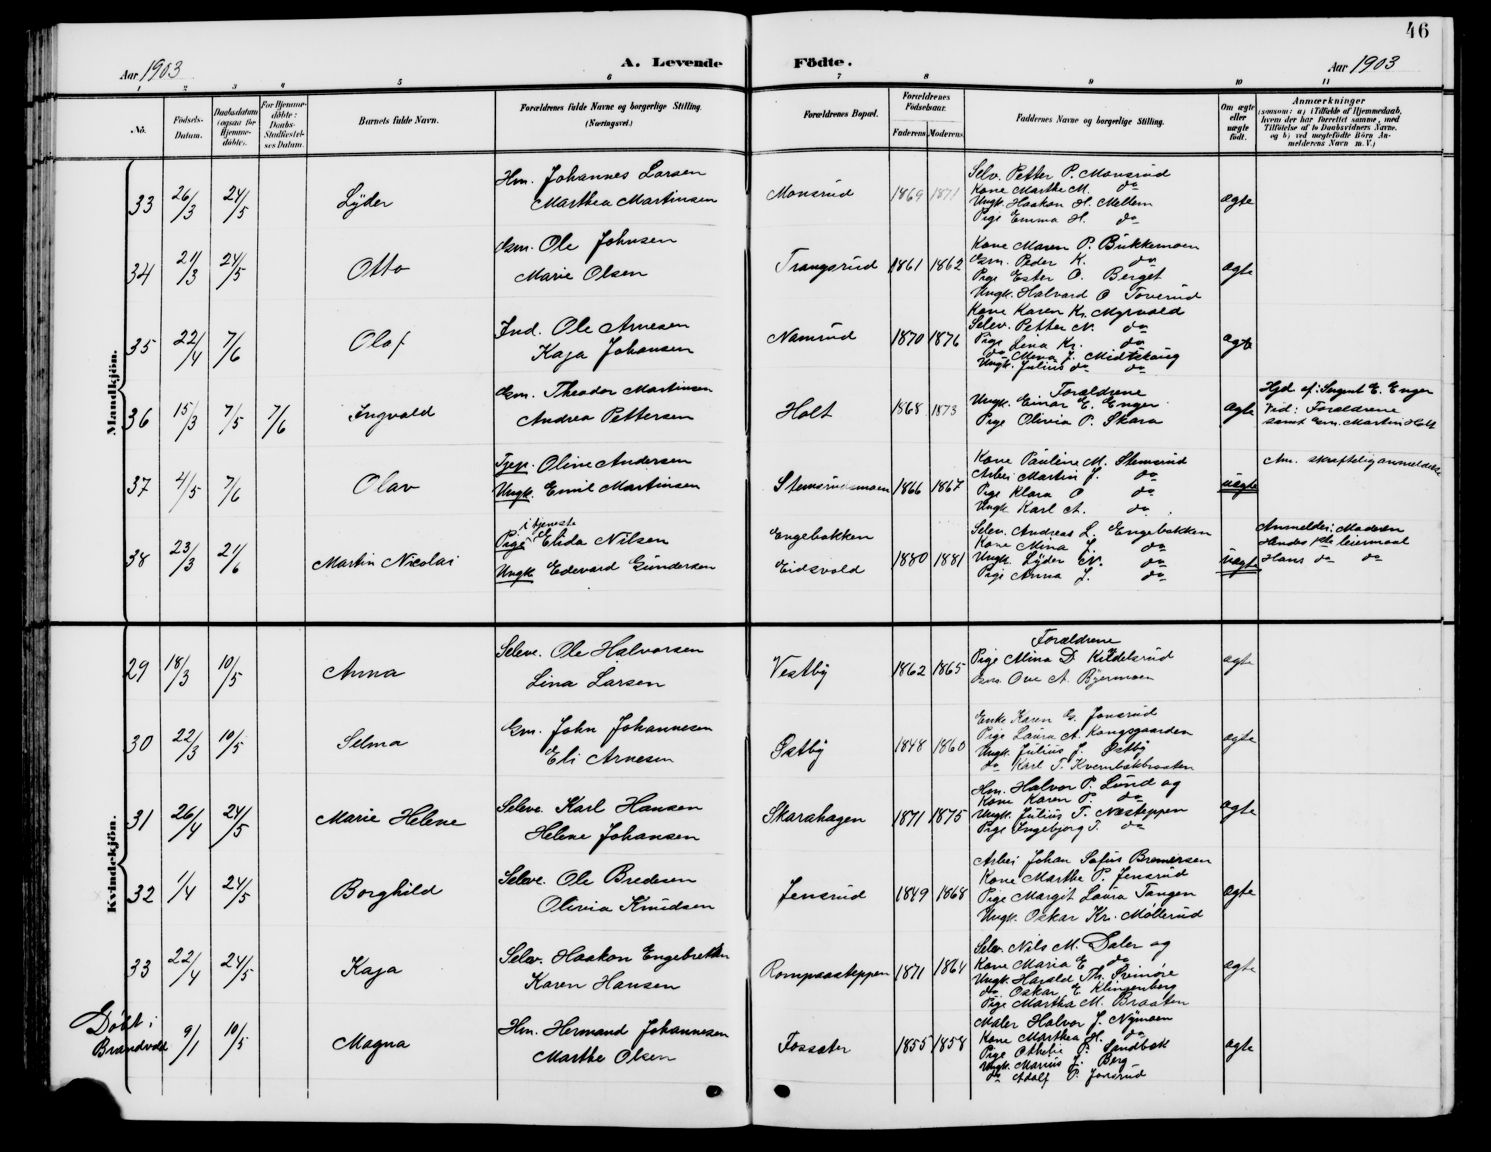 46
Aar 1903
A. Levende Fødte.
Aar 1903
1 2 3 4 5 6 7 8 9 10 11
No.
Fødsels-Datum.
Daabsdatum (ogsaa for Hjemme-døbte).
For Hjemme-døbte: Daabs-Stadfæstel-ses Datum.
Barnets fulde Navn.
Forældrenes fulde Navne og borgerlige Stilling. (Næringsvei.)
Forældrenes Bopæl.
Forældrenes Fødselsaar.
Faderens Moderens
Faddernes Navne og borgerlige Stilling.
Om ægte eller uægte født.
Anmærkninger
(saasom: a) i Tilfælde af Hjemmedaab, hvem der har forrettet samme, med Tilføielse af to Daabsvidners Navne. og b) ved uægtefødte Børn An-melderens Navn m. V.)
Mandkjøn.
33 26/3 24/5 Lyder
Hm. Johannes Larsen
Marthea Martinsen
Monsrud 1869 1871
Selv. Petter P. Monsrud
Kone Marthe M. do
Ungk. Haakon H. Mellem
Pige Emma H. do
ægte
34 21/3 24/5 Otto
Gm. Ole Johnsen
Marie Olsen
Trangsrud 1861 1862
Kone Maren P. Bukkemoen
Gm. Peder K. do
Pige Ester O. Berget
Ungk. Halvard O Toverud
ægte
35 22/4 7/6 Olaf
Ind. Ole Arnesen
Kaja Johansen
Namsrud 1870 1876
Kone Karen Kr. Myrvold
Selev. Petter N. do
Pige Lena Kr. do
do Mena J. Midtskoug
Ungk. Julius do do
ægte
36 15/3 7/5 7/6 Ingvald
Gm. Theodor Martinsen
Andrea Pettersen
Holt 1868 1873
Forældrene
Ungk. Einar E. Enger
Pige Olivia P. Skara
ægte
Hjd. af: Sergent E. Enger
Vid: Forældrene
samt Gm. Martin Holt
37 4/5 7/6 Olav
Tjep. Oline Andersen
Ungk. Emil Martinsen
Stemsrudsmoen 1866 1867
Kone Pauline M. Stemsrud
Arbei Martin J. do
Pige Klara O do
Ungk. Karl A. do
uægte
An. skriftelig anmeldelse
38 23/3 21/6 Martin Nicolai
i tjeneste
Pige Elida Nilsen
Ungk Edevard Gundersen
Engebakken
Eidsvold 1880 1881
Selev. Andreas L. Engebakken
Kone Mina J. do
Ungk. Lyder N. do
Pige Anna L. do
uægte
Anmelder: Moderen
Hendes 1ste leiermaal
Hans do do
Kvindekjøn.
29 18/3 10/5 Anna
Seleve. Ole Halvorsen
Lina Larsen
Vestby 1862 1865
Forældrene
Pige Mina D. Kildelsrud
Gm. Ove A. Byermoen
ægte
30 22/3 10/5 Selma
Gm. John Johannesen
Eli Arnesen
Østby 1848 1860
Enke Karen G. Jonsrud
Pige Laura A. Kongsgaarden
Ungk. Julius J. Østby
do Karl T. Kvernbakbraaten
ægte
31 26/4 24/5 Marie Helene
Seleve. Karl Hansen
Helene Johansen
Skarahagen 1871 1875
Hm. Halvor P. Lund og
Kone Karen P. do
Ungk. Julius T. Næsteppen
Pige Ingeborg T. do
ægte
32 1/4 24/5 Borghild
Seleve. Ole Bredesen
Olivia Knudsen
Jensrud 1849 1868
Arbei Johan Sofus Bremersen
Kone Marthe P. Jensrud
Pige Margit Laura Tangen
Ungk. Oskar Kr. Møllerud
ægte
33 22/4 24/5 Kaja
Selev. Haakon Engebretsen
Karen Hansen
Rompaasteppen 1871 1864
Selev. Nils M. Daler og
Kone Maria E do
Ungk. Harald Th. Svimøre
do Oskar E Klingenberg
Pige Martha M. Braaten
ægte
Døbt i
Brandvold
9/1 10/5 Magna
Hm. Hermand Johannesen
Marthe Olsen
Fossæter 1855 1858
Maler Halvor J. Nymoen
Kone Marthea H. do
Pige Othelie P. Sandbæk
Ungk. Marius J. Berg
do Adolf P. Jonsrud
ægte